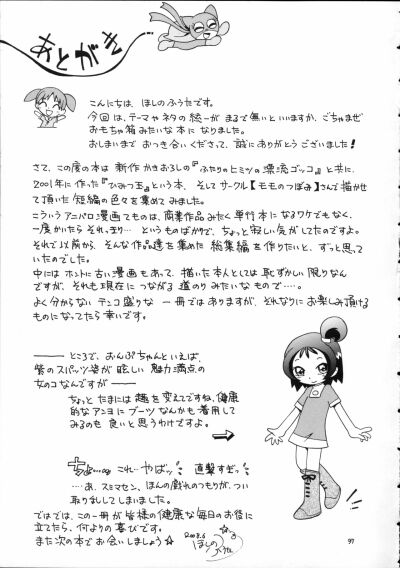 あとがき
こんにちは、ほしのふうたです。
今回は、テーマやネタの統一がまるで無いといいますか、ごちゃまぜ
おもちゃ箱みたいな本になりました。
おしまいまでおつき合いくださって、誠にありがとうございました!
さて、この度の本は新作かきおろしの『ふたりのヒミツの漂流ゴッコ』と共に、
2001年に作った『ひみつ玉』という本、そしてサークル【モモのつぼみ】さんで描かせ
て頂いた短編の色々を集めてみました。
こういうアニパロ漫画てものは、商業作品みたく単行本になるワケでもなく、
一度かいたらそれっきり…というものばかりで、ちょっと寂しい気がしてたのですよ。
それで以前から、そんな作品達を集めた総集編を作りたいと、ずっと思って
いたのでした。
中にはホントに古い漫画もあって、描いた本人としては恥ずかしい限りなん
ですが、それも現在につながる道のりみたいなもので……。
よく分からないテンコ盛りな一冊ではありますが、それなりにお楽しみ頂ける
ものになってたら幸いです。
ところで、おんぷちゃんといえば、
紫のスパッツ姿が眩しい魅力満点の
女のコなんですが
ちょっとたまには趣を変えてですね、健康
的なアンヨにブーツなんかも着用して
みるのも良いと思うわけですよ。
これ…やばッ 直撃すぎッ
…あ、スミマセン、ほんの戯れのつもりが、つい
取り乱してしまいました。
ではでは、この一冊が皆様の健康な毎日のお役に
立てたら、何よりの喜びです。
また次の本でお会いしましょう☆
2008.6
ほしのふうた
97